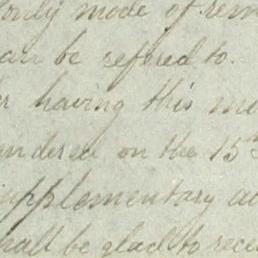 only mode of rem
can be refered to.
having this me
endered on the 15th
supplementary ac
shall be glad to rece